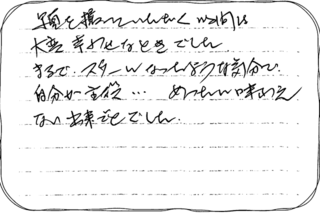 写真を撮っていただく時間は
大変幸せなときでした
まるで、スターになったような気分で
自分が主役… めったに味わえ
ない出来ごとでした。